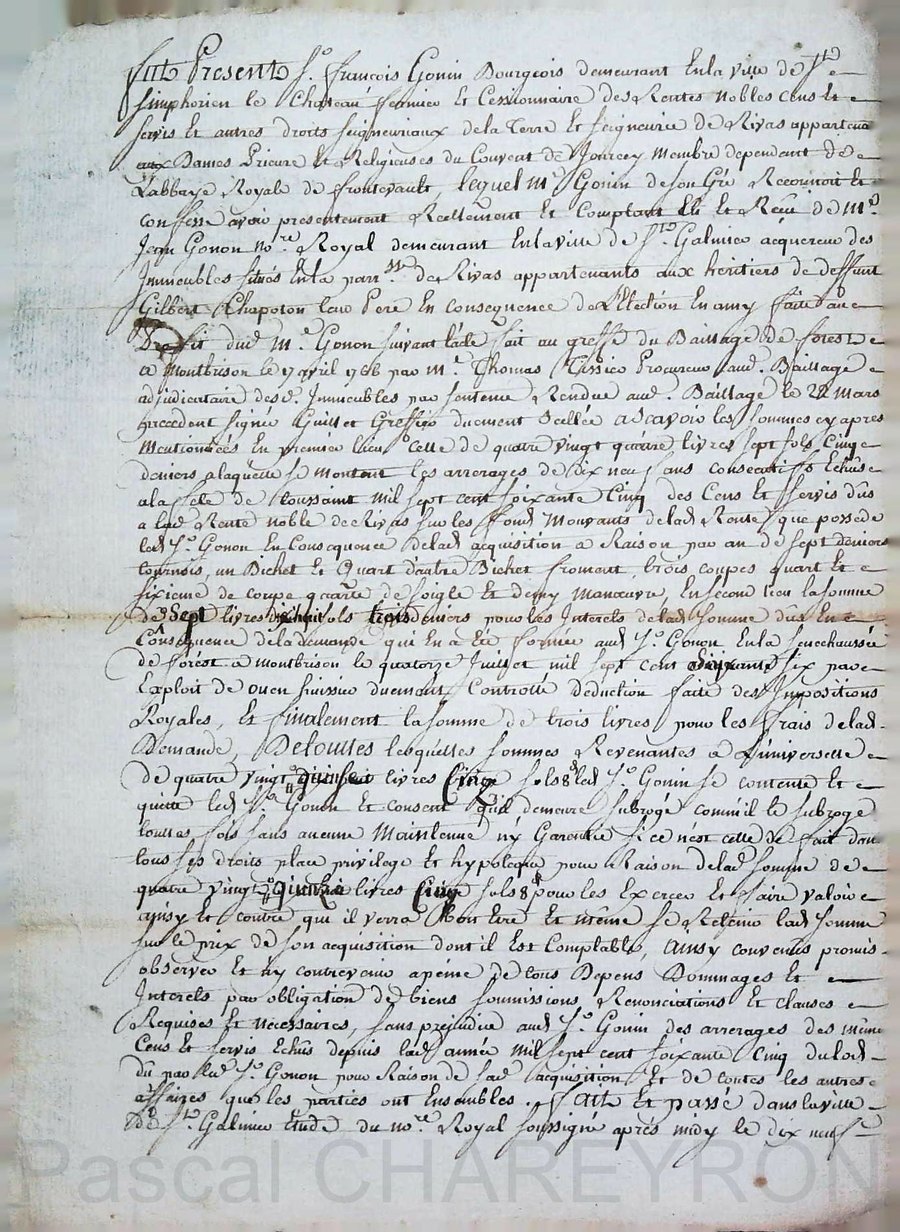 Fut Present Sr. francois Gonin Bourgeois demeurant En la ville de St.
Simphorien le Chateau fermier Et Cessionnaire des Rentes nobles Cens Et
servis Et autres droits Seigneuriaux de la Terre Et Seigneurie De Rivas appartena
aux Dames Prieure Et Religieuses du Couvent de Jourcey membre dependant de
L'abbaye Royale de frontevault, lequel mr. Gonin de son Gré Reconnoit Et
confesse avoir presentement Reellement Et Comptant Eü et Reçu De mr.
Jean Gonon nore. Royal demeurant En la ville de St. Galmier acquereur des
Immeubles situés En la parrsse. de Rivas appartenants aux heritiers de deffunt
Gilbert Chapoton leur Pere En consequence de L'Election En amy faite au
Proffit dud. mr. Gonon suivant l'acte fait au greffe du Baillage de forest
a montbrison le 17 avril 1766 par mr. Thomas Procureur aud. Baillage
adjudicataire desd. Immeubles par sentence Rendue aud. Baillage le 22 mars
precedent signée Greffier duement scellée a scavoir les sommes cy apres
mentionnées En premier lieu Celle de quatre vingt quatre livres sept sols Cinq
deniers a laquelle se montent les arrerages de dix neuf ans consecutifs Echus
a la fete de toussaint mil sept cent soixante Cinq des Cens Et servis dûs
a lad. Rente noble de Rivas sur les ffond mouvants de lad. Rente que possede
led. Sr. Gonon En Consequence de lad. acquisition a Raison par an de sept deniers
tournois, un Bichet Et Quart d'autre Bichet froment, trois coupes quart et
sixieme de coupe quarte de soigle Et demy manoeuvre, En second lieu la somme
de sept livres dix huit sols trois deniers pour les Interets de lad. somme dus En
Consequence de la demande qui En a Eté formée aud. Sr. Gonon En la senechaussée
de forest a montbrison le quatorze Juillet mil sept cent soixante six par
Exploit de ouen huissier duement Controllé deduction faite des Impositions
Royales, Et finalement la somme de trois livres pour les frais de lad.
Demande, De touttes lesquelles sommes Revenantes a L'universelle
de quatre vingt quinze livres Cinq sols 8d. led. Sr. Gonin se contente Et
quitte led. Sr. Gonon Et consent qu'il demeure subrogé comme il le subroge
touttes fois sans aucune Maintenue ny Garentie si ce n'est celle de fait dans
tous ses droits place privilege Et hypoteque pour Raison de lad. somme de
quatre vingt quinze livres Cinq sols 8d. pour les Exercer Et faire valoir
ainsy Et contre qui il verra Bon Etre Et même se Retenir lad. somme
sur le prix de son acquisition dont il Est Comptable, ainsy convenus promis
observer Et ny contrevenir a peine de tous Depens Dommages Et
Interets par obligation De biens soumissions, Renonciations Et clauses
Requises Et necessaires, sans prejudice aud. Sr. Gonin des arrerages des même
Cens Et servis Echus depuis lad. année mil sept cent soixante Cinq
dû par led. Sr. Gonon pour Raison de sad. acquisition Et de touttes les autres
affaires que les parties ont Ensembles. Fait Et passé dans la ville
de St. Galmier Etude du nore. Royal soussigné après midy le dix neuf
Pascal CHAREYRON